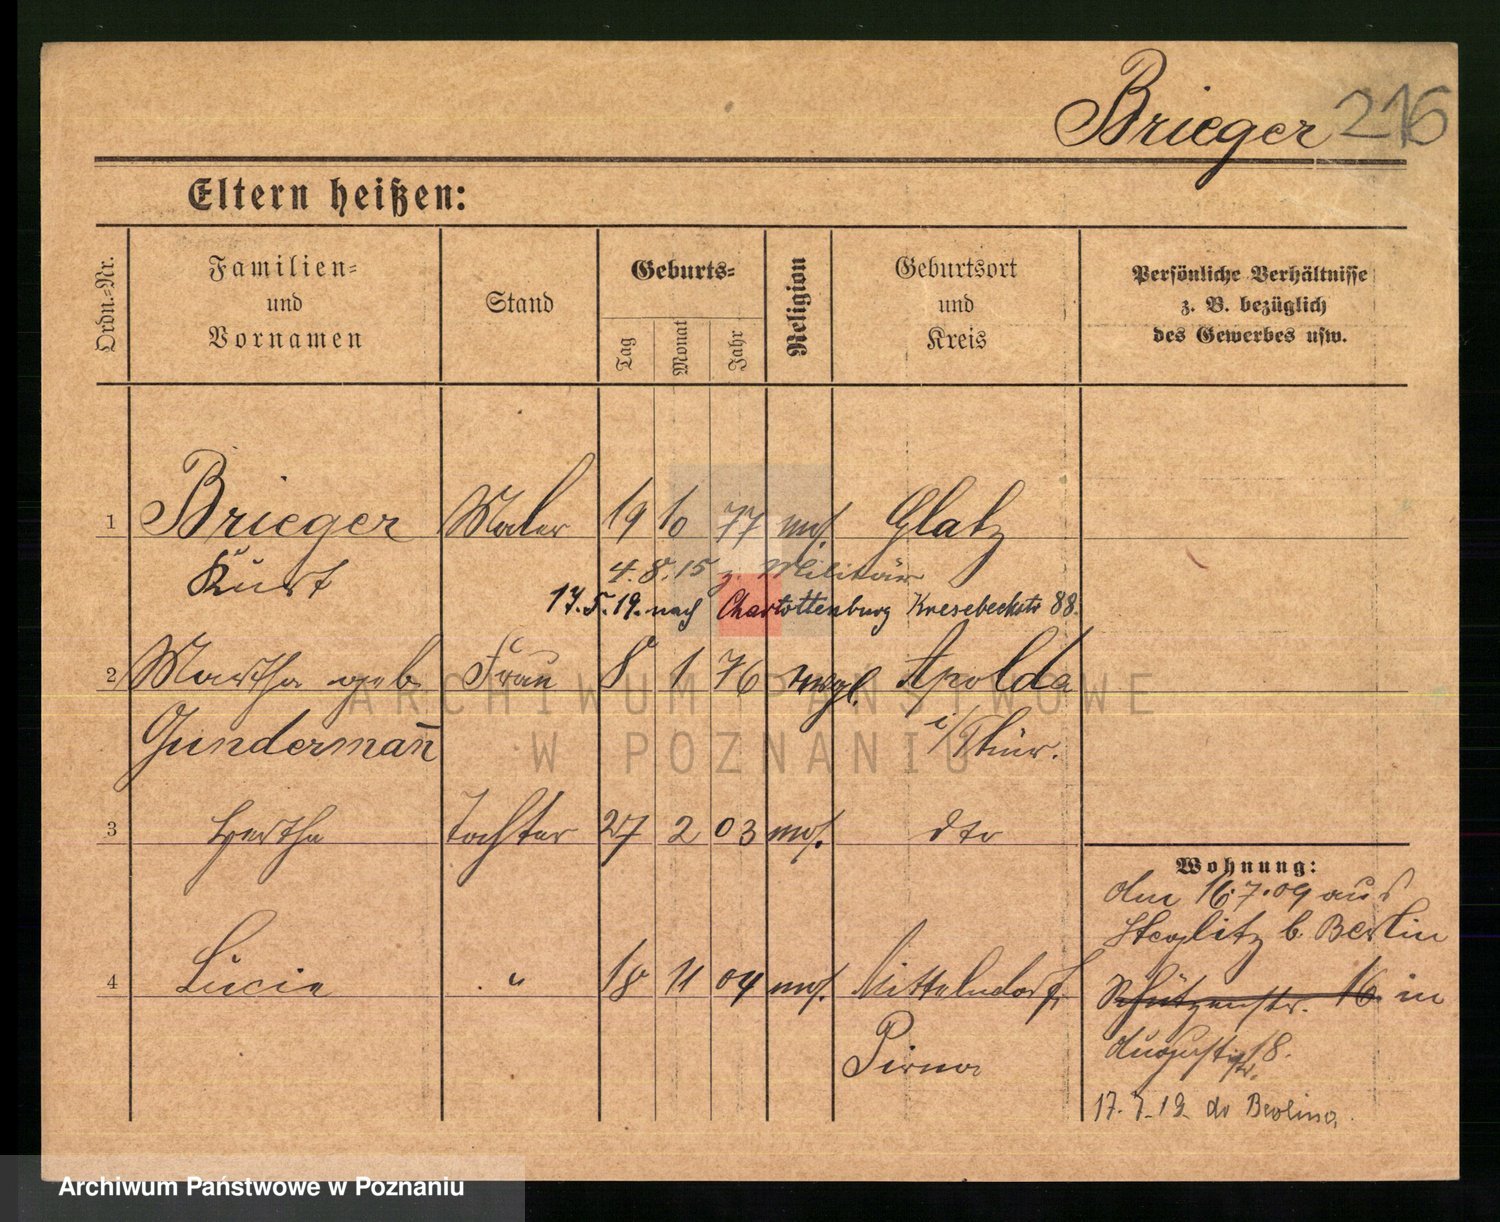 Brieger 216
Eltern heißen:
Ordn.-Nr.
Familien-
und
Vornamen
Stand
Geburts-
Tag
Monat
Jahr
Religion
Geburtsort
und
Kreis
Persönliche Verhältnisse
z. B. bezüglich
des Gewerbes usw.
1 Brieger Maler 19 10 77 mos. Glatz
Kurt 4.8.15 z. Militär
17.5.19. nach Charlottenburg Knesebeckstr 88.
2 Martha geb Frau 8 1 76 evgl. Apolda
Gundermañ i/Thür.
3 Hertha Tochter 27 2 03 mos. dto
4 Lucie " 18 11 04 mos. Mittelndorf
Pirna
Wohnung:
den 16.7.09 aus
Steglitz b Berlin
Schützenstr. 16. in
Auguststr. 18.
17.7.19 do Berlina.
ARCHIWUM PAŃSTWOWE
W POZNANIU
Archiwum Państwowe w Poznaniu